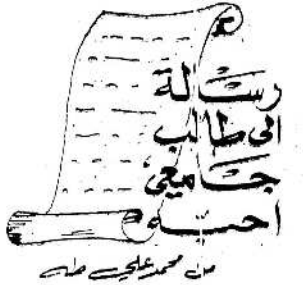 رسالة
الى طالب
جامعي
احبه
من محمد علي طه